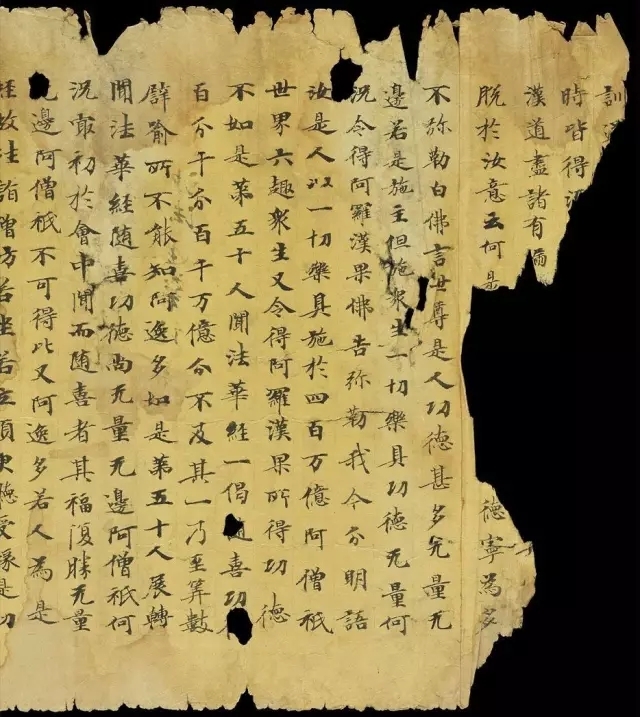 訓
時皆得
漢道盡諸有漏
脫於汝意云何是 德寧為多
不弥勒白佛言世尊是人功德甚多无量无
邊若是施主但施衆生一切樂具功德无量何
况令得阿羅漢果佛告弥勒我今分明語
汝是人以一切樂具施於四百万億阿僧祇
世界六趣衆生又令得阿羅漢果所得功德
不如是第五十人聞法華經一偈喜功
百分千分百千万億分不及其一乃至筭數
譬喻所不能知阿逸多如是第五十人展轉
聞法華經随喜功德尚无量无邊阿僧祇何
况最初於會中聞而随喜者其福復勝无量
邊阿僧祇不可得比又阿逸多若人為是
經故往詣僧坊若坐若立須臾聽受緣是功